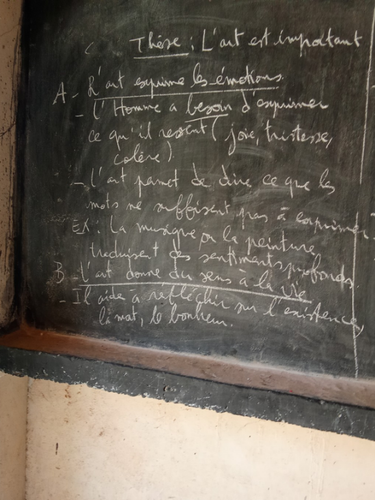 Thèse : L'art est important
A - L'art exprime les émotions.
- L'Homme a besoin d'exprimer
ce qu'il ressent ( joie, tristesse,
colère )
- L'art permet de dire ce que les
mots ne suffisent pas à exprimer.
EX : la musique ou la peinture
traduisent des sentiments profonds.
B - L'art donne du sens à la vie
- Il aide à réfléchir sur l'existence,
la mort, le bonheur.